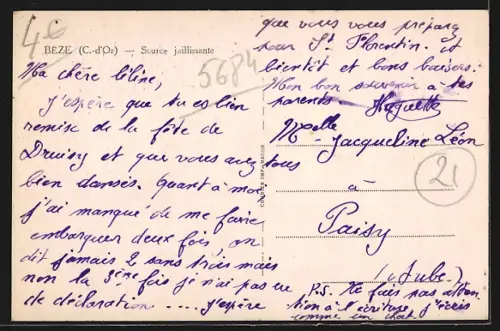 4€
BÈZE (C.-d'Or) — Source jaillissante
5684
Ma chère Céline,
J'espère que tu es bien
remise de la fête de
et que vous avez tous
bien dansés. Quant à moi
j'ai manqué de me faire
embarquer deux fois, on
dit jamais 2 sans trois mais
non la 3ème fois je n'ai pas eu
de déclaration ..... J'espère
que vous vous préparez
pour St Florentin. et
bientôt et bons baisers.
Mon bon souvenir à tes
parents. Huguette
Melle Jacqueline Léon
à
Paisy
(Aube)
21
P.S. Ne fais pas atten
tion à l'écriture j'écris
comme un chat